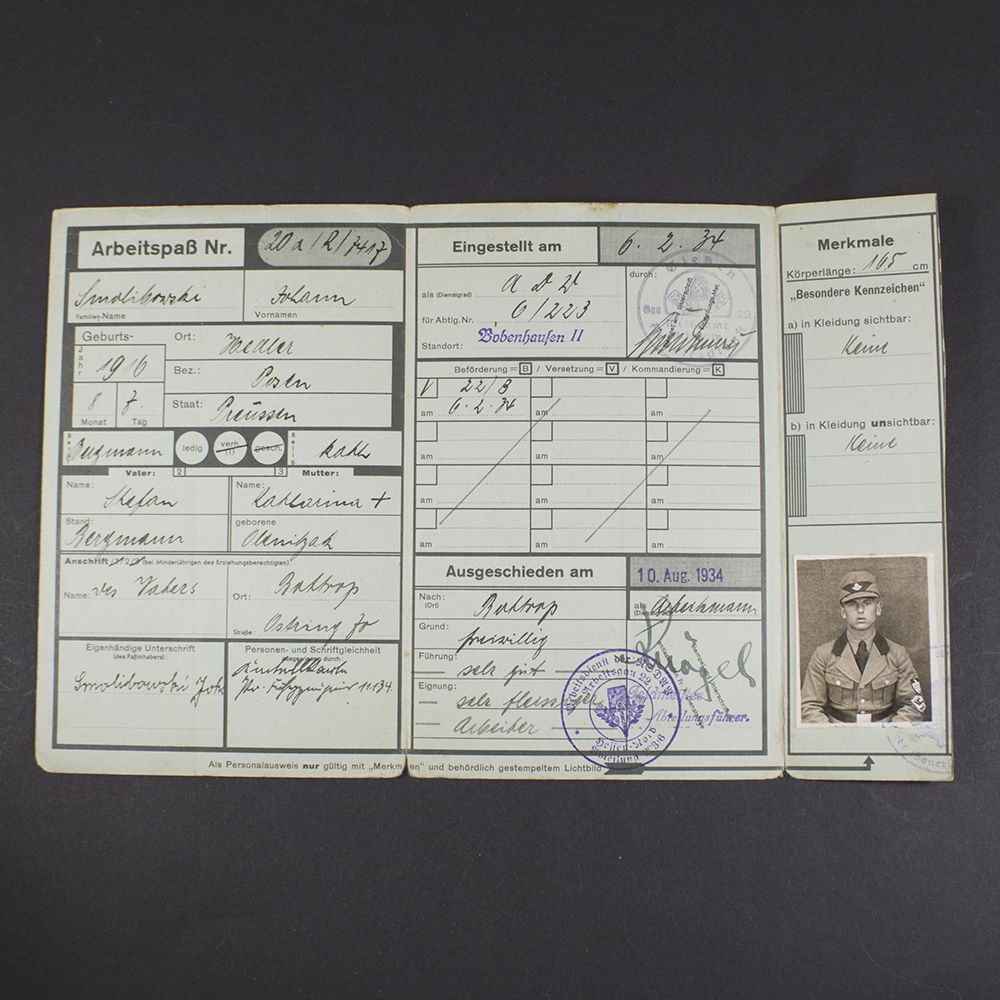 Arbeitspaß Nr. 20a/2/7417
Smolibowski Johann
Familien-Name Vornamen
Geburts-
Jahr 1916
8 7.
Monat Tag
Ort:
Bez.: Posen
Staat: Preussen
Bergmann ledig verh. gesch. kath
Vater: 2 3 Mutter:
Name: Stefan
Name: Katharina +
Stand: Bergmann
geborene
Anschrift (bei Minderjährigen des Erziehungsberechtigten)
Name: des Vaters
Ort: Bottrop
Straße: Ostring
Eigenhändige Unterschrift
(des Paßinhabers):
Smolibowski Joh
Personen- und Schriftgleichheit
durch:
11.1.34
Als Personalausweis nur gültig mit „Merkmalen“ und behördlich gestempeltem Lichtbild
Eingestellt am 6. 2. 34
als (Dienstgrad) A D W
für Abtlg. Nr. 6/223
Standort: Bobenhausen II
durch:
Beförderung = B / Versetzung = V / Kommandierung = K
V 22/8
am 6.2.34 am am
am am am
am am am
am am am
am am am
Ausgeschieden am 10. Aug. 1934
Nach: Bottrop
(Ort)
als Arbeitsmann
Grund: freiwillig
Führung: sehr gut
Eignung: sehr fleissiger
Arbeiter
Feldmeister
Abteilungsführer.
Arbeitsdienst der NSDAP
Arbeitsgau 22
Hessen-Nord
Merkmale
Körperlänge: 165 cm
„Besondere Kennzeichen“
a) in Kleidung sichtbar:
Keine
b) in Kleidung unsichtbar:
Keine